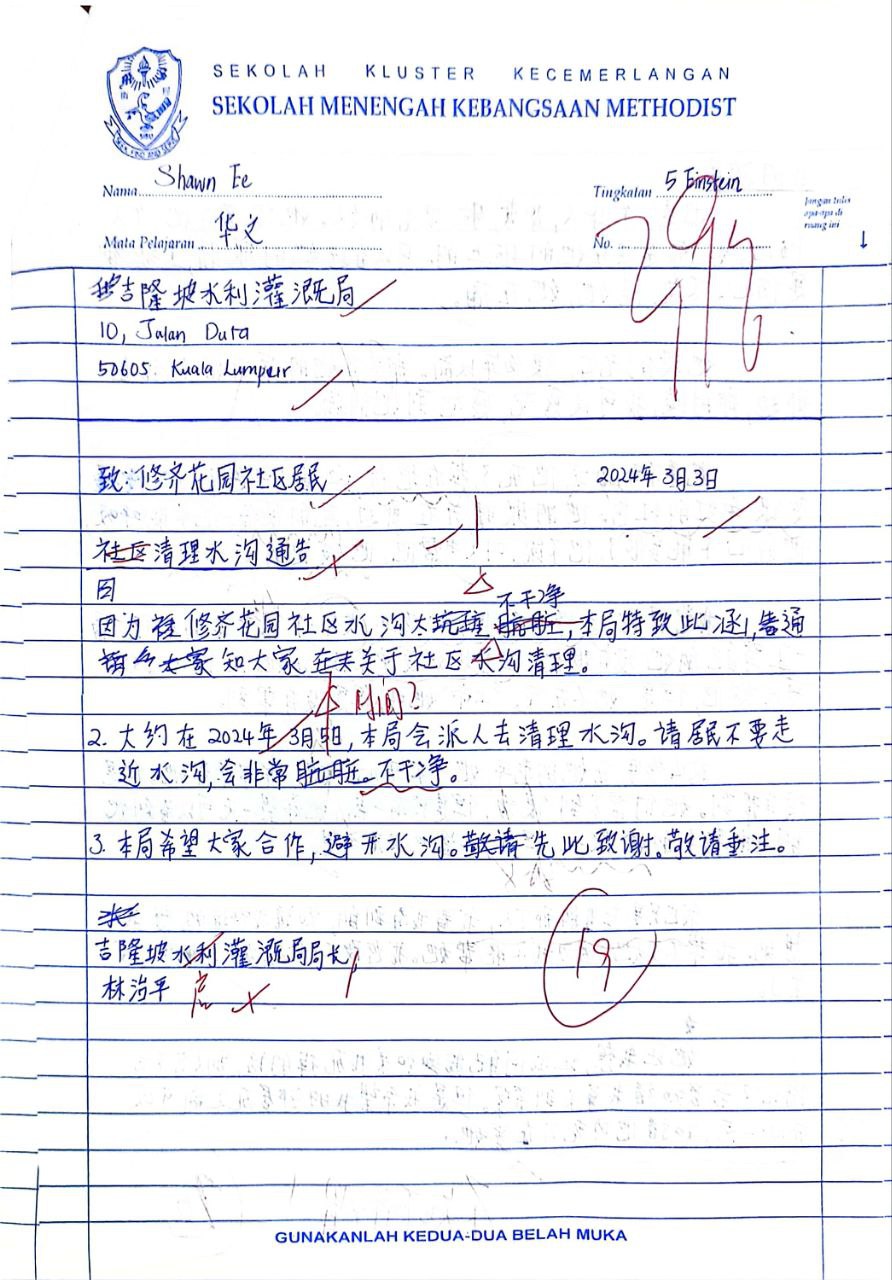 SEKOLAH KLUSTER KECEMERLANGAN
SEKOLAH MENENGAH KEBANGSAAN METHODIST
Nama Shawn Ee
Tingkatan 5 Einstein
Mata Pelajaran 华文
No.
Jangan tulis apa-apa di ruang ini
吉隆坡水利灌溉局
10, Jalan Duta
50605 Kuala Lumpur
致:修齐花园社区居民 2024年3月3日
清理水沟通告
因为修齐花园社区水沟太不干净,本局特致此涵,告通
知大家关于社区水沟清理。
时间?
2. 大约在2024年3月5日,本局会派人去清理水沟。请居民不要走
近水沟,会非常不干净。
3. 本局希望大家合作,避开水沟。先此致谢。敬请垂注。
吉隆坡水利灌溉局局长
林治平
启
19
GUNAKANLAH KEDUA-DUA BELAH MUKA